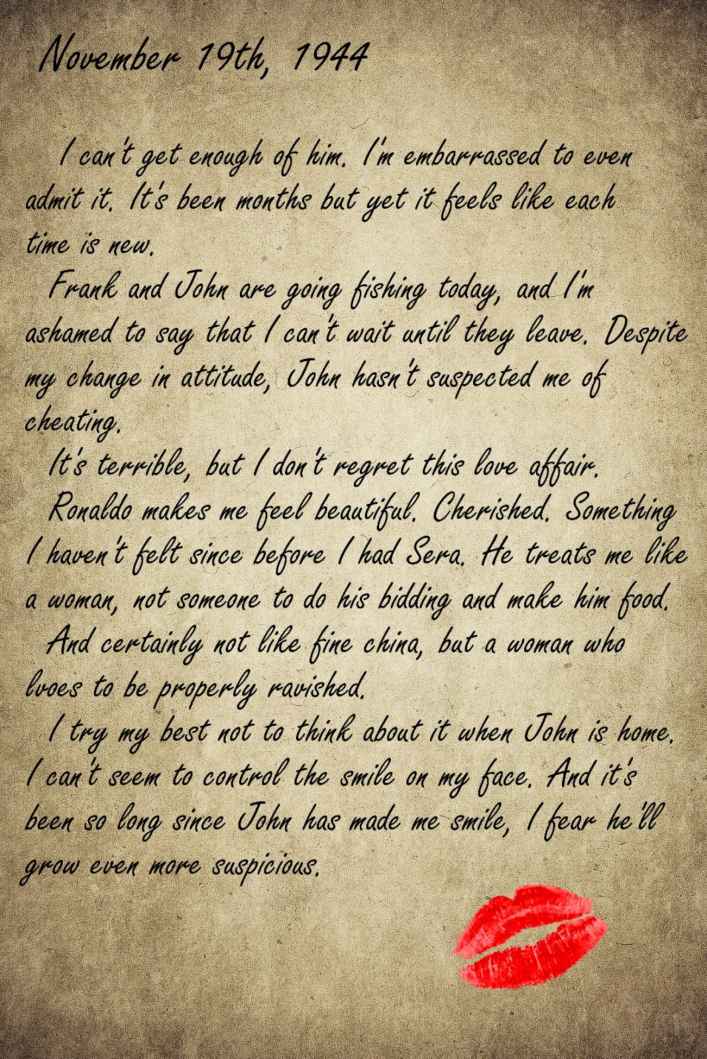 November 19th, 1944
I can't get enough of him. I'm embarrassed to even
admit it. It's been months but yet it feels like each
time is new.
Frank and John are going fishing today, and I'm
ashamed to say that I can't wait until they leave. Despite
my change in attitude, John hasn't suspected me of
cheating.
It's terrible, but I don't regret this love affair.
Ronaldo makes me feel beautiful. Cherished. Something
I haven't felt since before I had Sera. He treats me like
a woman, not someone to do his bidding and make him food.
And certainly not like fine china, but a woman who
lvoes to be properly ravished.
I try my best not to think about it when John is home.
I can't seem to control the smile on my face. And it's
been so long since John has made me smile, I fear he'll
grow even more suspicious.